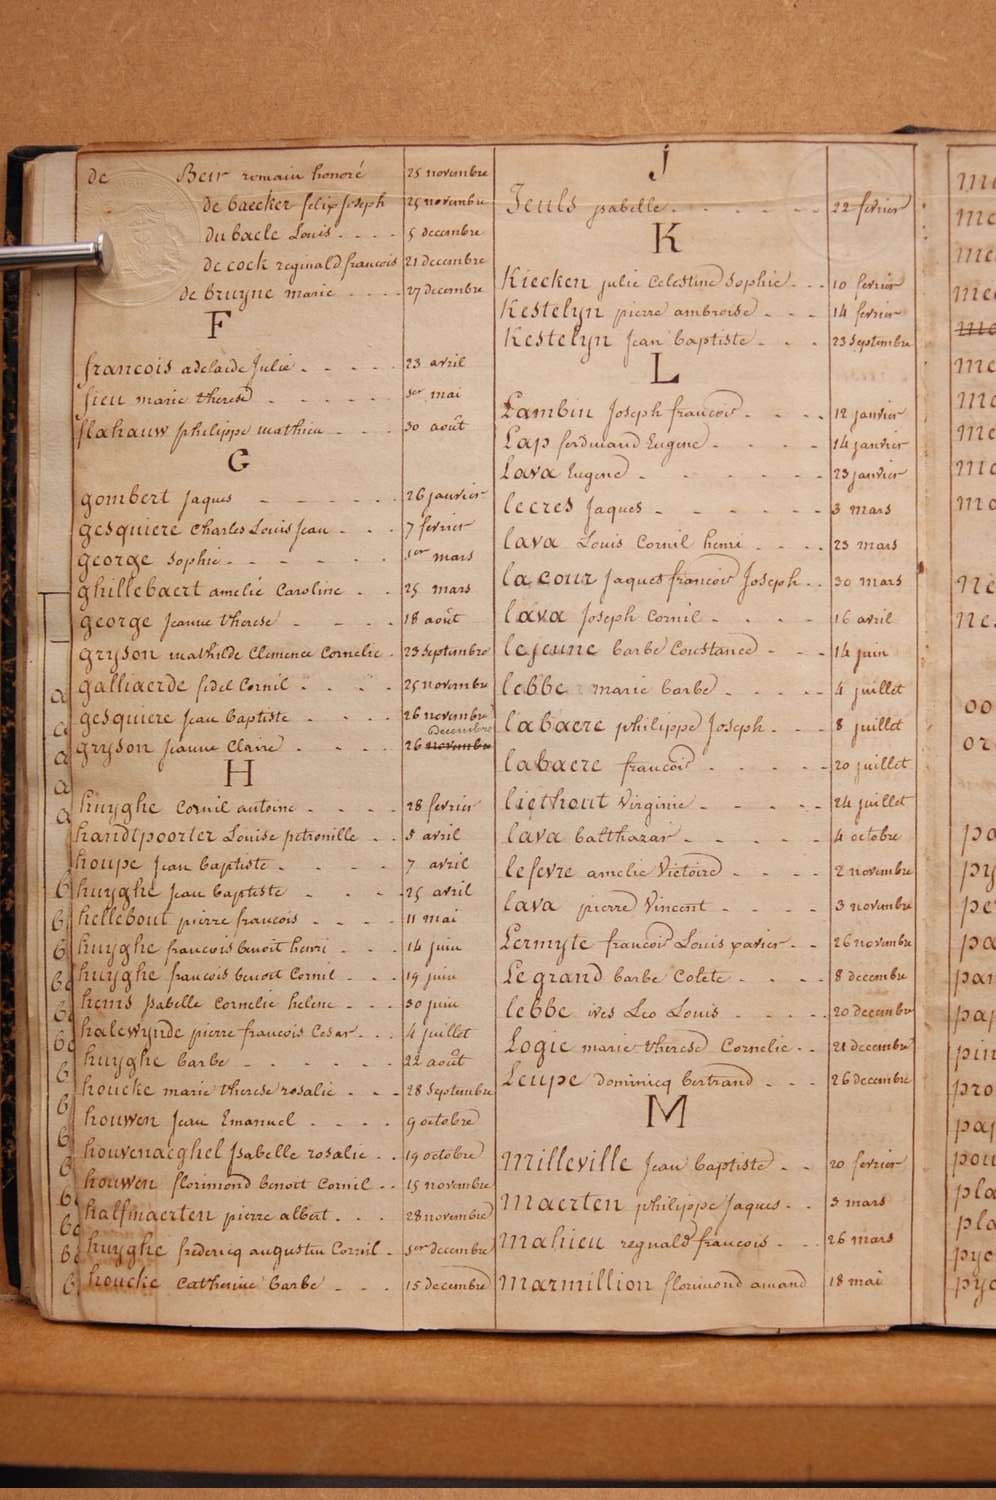 de Beir romain honoré 25 novembre
de baecker felix joseph 25 novembre
du baele Louis 5 decembre
de cock reginald francois 21 decembre
de bruyne marie 27 decembre
F
francois adelaide Julie 23 avril
fieu marie therese 1er mai
flahauw philippe mathieu 30 août
G
gombert jaques 26 janvier
gesquiere charles Louis jean 7 fevrier
george sophie 1er mars
ghillebaert amelie Caroline 25 mars
george jeanne therese 18 août
gryson mathilde Clemence Cornelie 23 septembre
galliaerde fidel Cornil 25 novembre
gesquiere jean baptiste 26 novembre
decembre
gryson jeanne Claire 26 novembre
H
huyghe Cornil antoine 28 fevrier
handtpoorter Louise petronille 5 avril
houpe jean baptiste 7 avril
huyghe jean baptiste 25 avril
hellebout pierre francois 11 mai
huyghe francois benoit henri 14 juin
huyghe francois benoit Cornil 19 juin
hems isabelle Cornelie helene 30 juin
halewynde pierre francois Cesar 4 juillet
huyghe barbe 22 août
houcke marie therese rosalie 28 septembre
houwen jean Emanuel 9 octobre
houvenaeghel isabelle rosalie 19 octobre
houwen florimond benoit Cornil 15 novembre
halfmaerten pierre albert 28 novembre
huyghe frédericq augustin Cornil 1er decembre
houcke Catherine barbe 15 decembre
J
Jeuls isabelle 22 fevrier
K
Kiecken julie Celestine Sophie 10 fevrier
Kestelyn pierre ambroise 14 fevrier
Kestelyn jean baptiste 23 septembre
L
Lambin joseph francois 12 janvier
Lap ferdinand Eugene 14 janvier
Lava Eugene 23 janvier
lecres jaques 3 mars
lava Louis Cornil henri 23 mars
lacour jaques francois joseph 30 mars
lava joseph Cornil 16 avril
lejeune barbe Constance 14 juin
lebbe marie barbe 4 juillet
labaere philippe joseph 8 juillet
labaere francois 20 juillet
liethout Virginie 24 juillet
lava balthazar 4 octobre
lefevre amelie Victoire 2 novembre
lava pierre Vincent 3 novembre
Lermyte francois Louis xavier 26 novembre
Legrand barbe Colete 8 decembre
lebbe ives Leo Louis 20 decembre
Logie marie therese Cornelie 21 decembre
Leupe dominicq bertrand 26 decembre
M
Milleville jean baptiste 20 fevrier
Maerten philippe jaques 3 mars
Mahieu regnald francois 26 mars
Marmillion florimond amand 18 mai